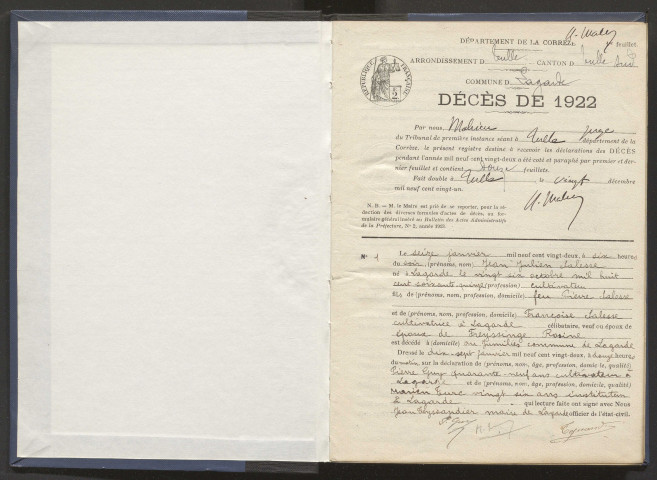 DÉPARTEMENT DE LA CORRÈZE feuillet.
ARRONDISSEMENT D Tulle CANTON D Tulle Sud
COMMUNE D Lagarde
RÉPUBLIQUE FRANÇAISE
DÉCÈS DE 1922
Par nous, juge
du Tribunal de première instance séant à Tulle département de la
Corrèze, le présent registre destiné à recevoir les déclarations des DÉCÈS
pendant l'année mil neuf cent vingt-deux a été coté et paraphé par premier et der-
nier feuillet et contient douze feuillets.
Fait double à Tulle, le vingt décembre
mil neuf cent vingt-un.
N. B. — M. le Maire est prié de se reporter, pour la ré-
daction des diverses formules d'actes de décès, au for-
mulaire général inséré au Bulletin des Actes Administratifs
de la Préfecture, N° 2, année
N° 1 Le seize janvier mil neuf cent vingt-deux, à six heures
du soir (prénoms, nom) Jean Julien Salesse
né à Lagarde le vingt six octobre mil huit
cent soixante quinze (profession) cultivateur
fils de (prénoms, nom, profession, domicile) feu Pierre Salesse
et de (prénoms, nom, profession, domicile) Françoise Salesse
cultivatrice à Lagarde célibataire, veuf ou époux de
époux de Freyssinge Rosine
est décédé à (domicile) commune de Lagarde
Dressé le dix-sept janvier, mil neuf cent vingt-deux, à heures
du matin, sur la déclaration de (prénoms, nom, âge, profession, domicile, qualité)
Pierre Guy quarante-neuf ans cultivateur à
Lagarde et de (prénoms, nom, âge, profession, domicile, qualité)
vingt six ans instituteur
à Lagarde qui lecture faite ont signé avec Nous
Jean Teyssandier maire de Lagarde officier de l'état-civil.